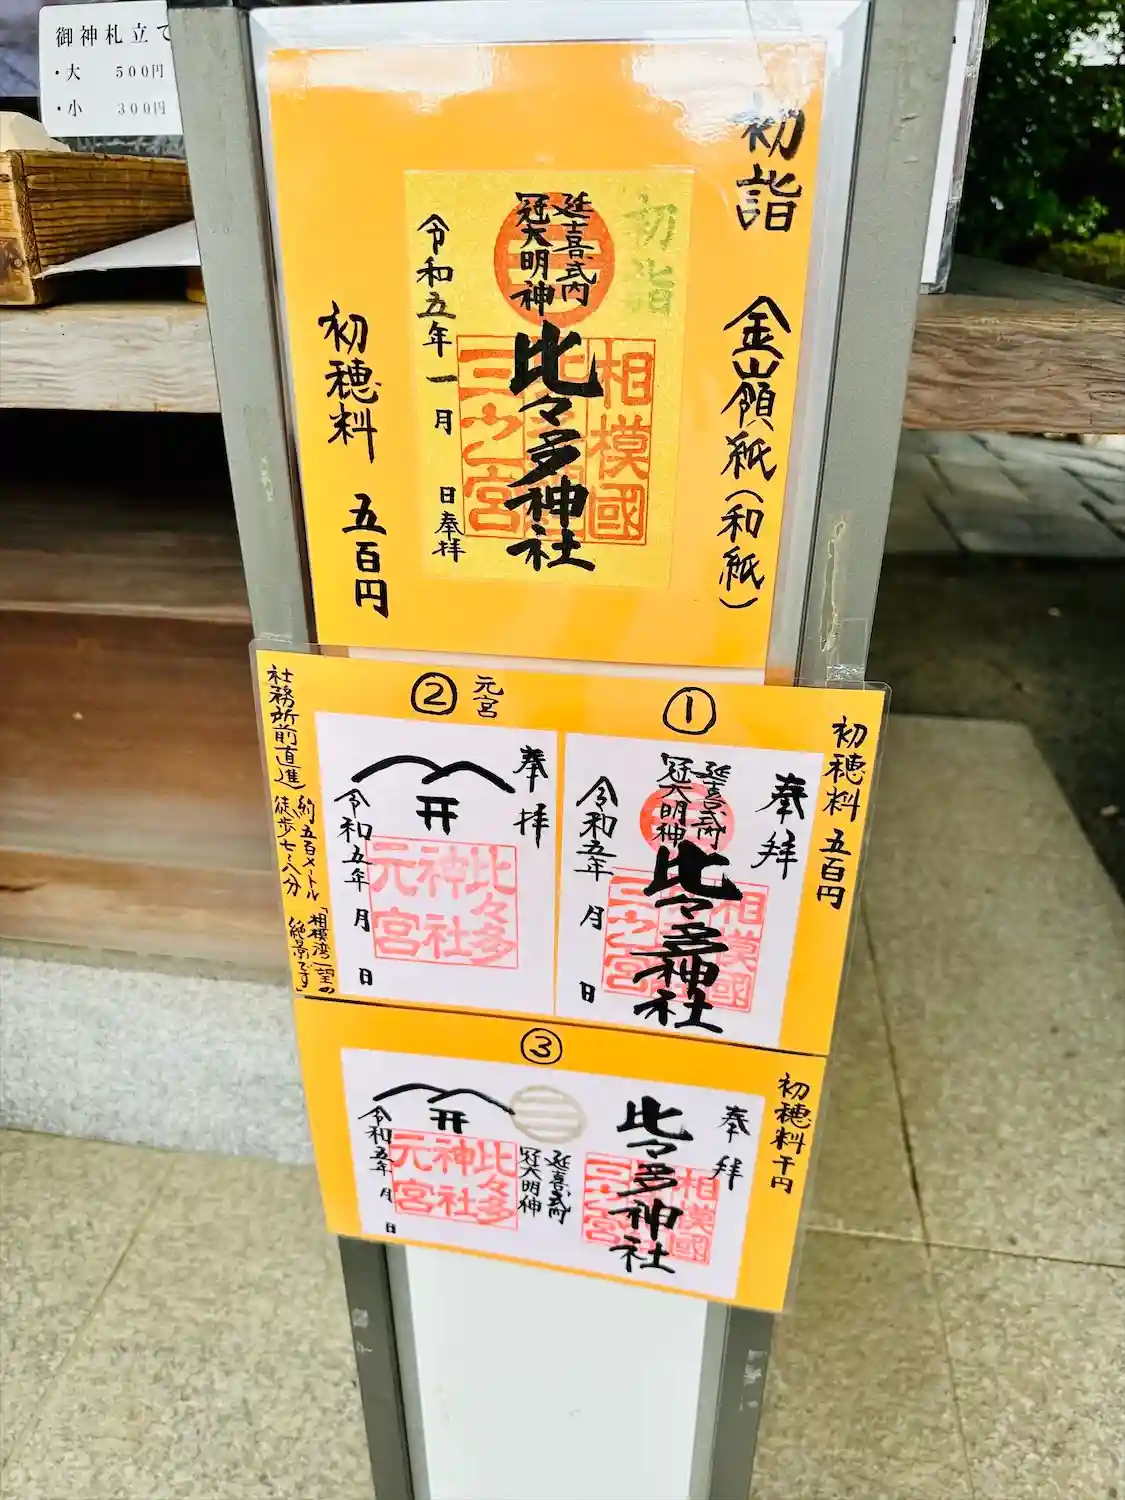 御神札立て
・大 500円
・小 300円
初詣 金嶺紙(和紙)
初詣
延喜式内
冠大明神
相模國
三之宮
比々多神社
令和五年一月 日奉拝
初穂料 五百円
初穂料 五百円
①
奉拝
延喜式内
冠大明神
相模國
三之宮
比々多神社
令和五年 月 日
② 元宮
奉拝
比々多
神社
元宮
令和五年 月 日
社務所前直進)
約五百メートル
徒歩七~八分
「相模湾一望の
絶景です」
③
初穂料 千円
奉拝
比々多神社
相模國
三之宮
延喜式内
冠大明神
比々多
神社
元宮
令和五年 月 日